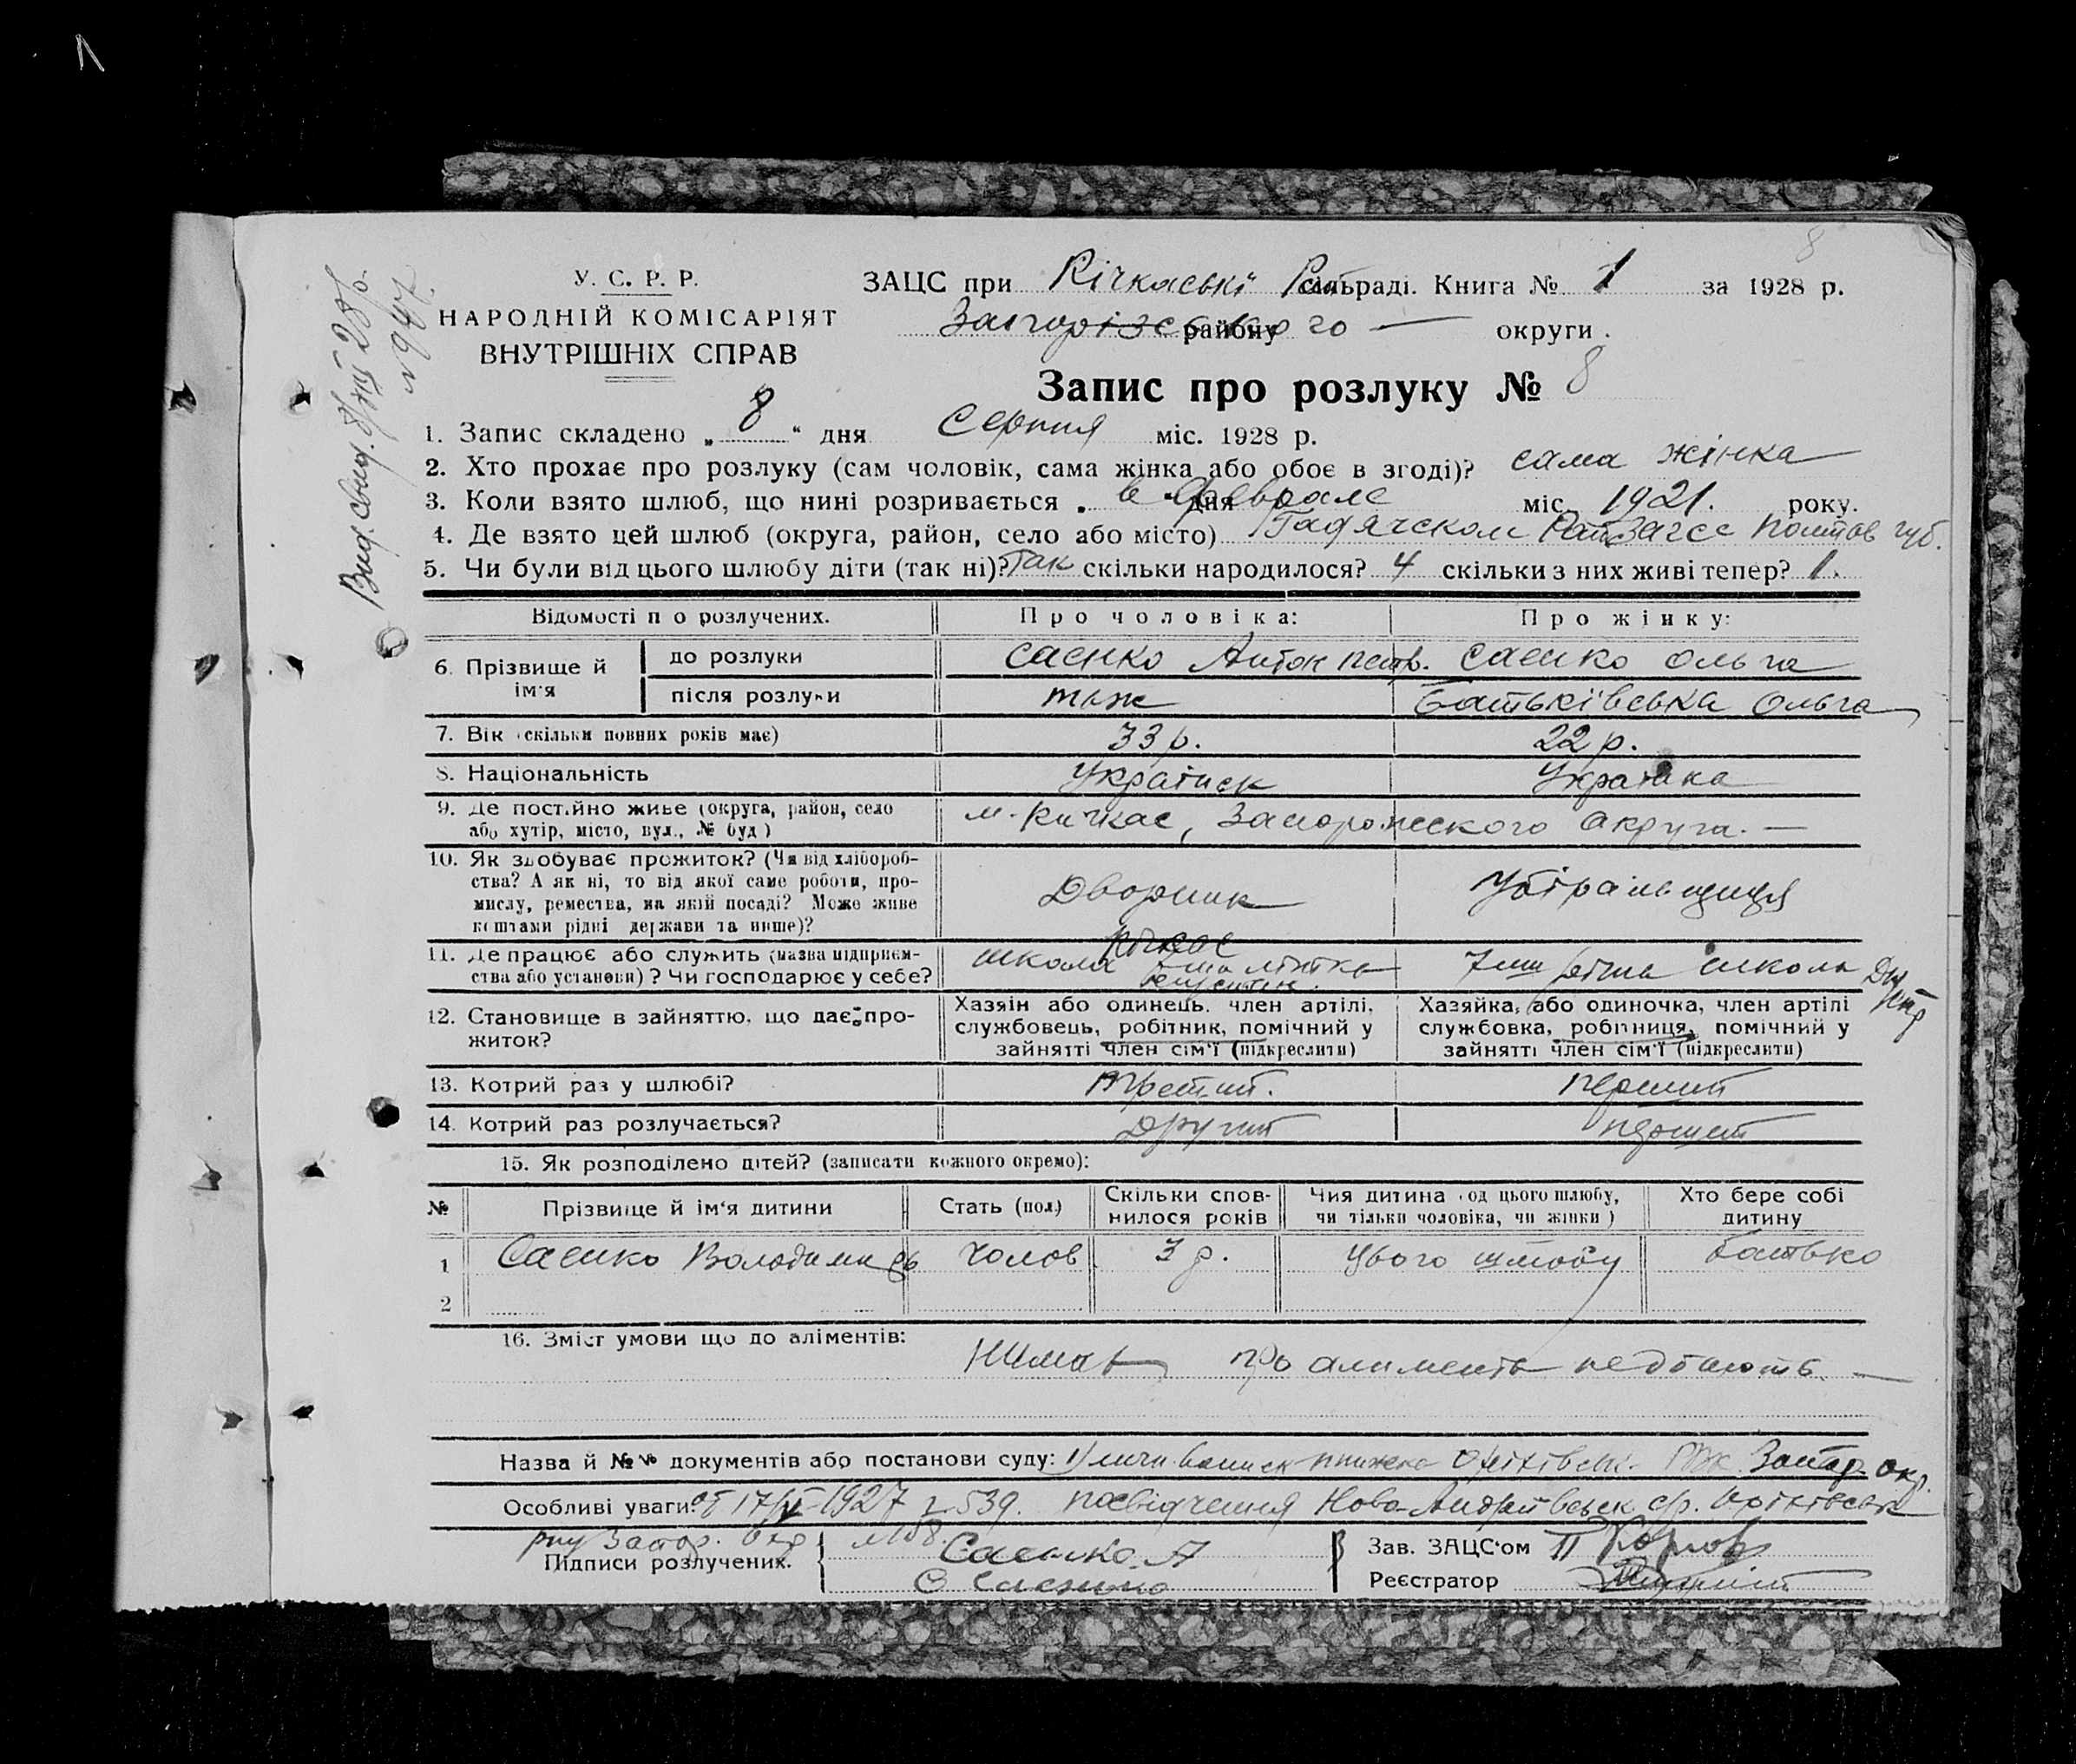 8
У. С. Р. Р.
НАРОДНІЙ КОМІСАРІЯТ
ВНУТРІШНІХ СПРАВ
ЗАЦС при Кічкаські сільраді. Книга № 1 за 1928 р.
Запорізського району — округи.
Запис про розлуку № 8
1. Запис складено „ 8 “ дня Серпня міс. 1928 р.
2. Хто прохає про розлуку (сам чоловік, сама жінка або обоє в згоді)? сама жінка
3. Коли взято шлюб, що нині розривається „ в Феврале дня міс. 1921. року.
4. Де взято цей шлюб (округа, район, село або місто) Гадячском Полтав губ.
5. Чи були від цього шлюбу діти (так ні)? Так скільки народилося? 4 скільки з них живі тепер? 1.
Відомості п о розлучених.
Про чоловіка:
Про жінку:
6. Прізвище й ім'я
до розлуки
Саенко Антон Петр.
Саенко Ольга
після розлуки
тож
Батьківська Ольга
7. Вік (скільки повних років має)
33 р.
22 р.
8. Національність
Украінец
Украінка
9. Де постійно живе (округа, район, село
або хутір, місто, вул., № буд)
м. Кичкас, Запорожского Округа. —
10. Як здобуває прожиток? (Чи від хлібороб-
ства? А як ні, то від якої саме роботи, про-
мислу, ремества, на якій посаді? Може живе
коштами рідні держави та инше)?
Дворник
Убіральщиця
11. Де працює або служить (назва підприєм-
ства або установи)? Чи господарює у себе?
школа Кічкас
школа
12. Становище в зайняттю, що дає про-
житок?
Хазяін або одинець, член артілі,
службовець, робітник, помічний у
зайнятті член сім'ї (підкреслити)
Хазяйка, або одиночка, член артілі
службовка, робітниця, помічний у
зайнятті член сім'ї (підкреслити)
13. Котрий раз у шлюбі?
Третий.
Перший
14. Котрий раз розлучається?
Другий
перший
15. Як розподілено дітей? (записати кожного окремо):
№
Прізвище й ім'я дитини
Стать (пол.)
Скільки спов-
нилося років
Чия дитина (од цього шлюбу,
чи тільки чоловіка, чи жінки)
Хто бере собі
дитину
1
Саенко Володимир
Чолов
3 р.
Цього шлюбу
батько
2
16. Зміст умови що до аліментів:
Нимає про алименты недбають. —
Назва й №№ документів або постанови суду: Оріхівськ. Запор. окр.
Особливі уваги: от 17/VI-1927 г. 539. посвідчення Ново-Андріївськ с/р. Оріхівськ
рну Запор. Окр №108
Підписи розлучених.
Саенко А
О Саенко
Зав. ЗАЦС'ом
Реєстратор